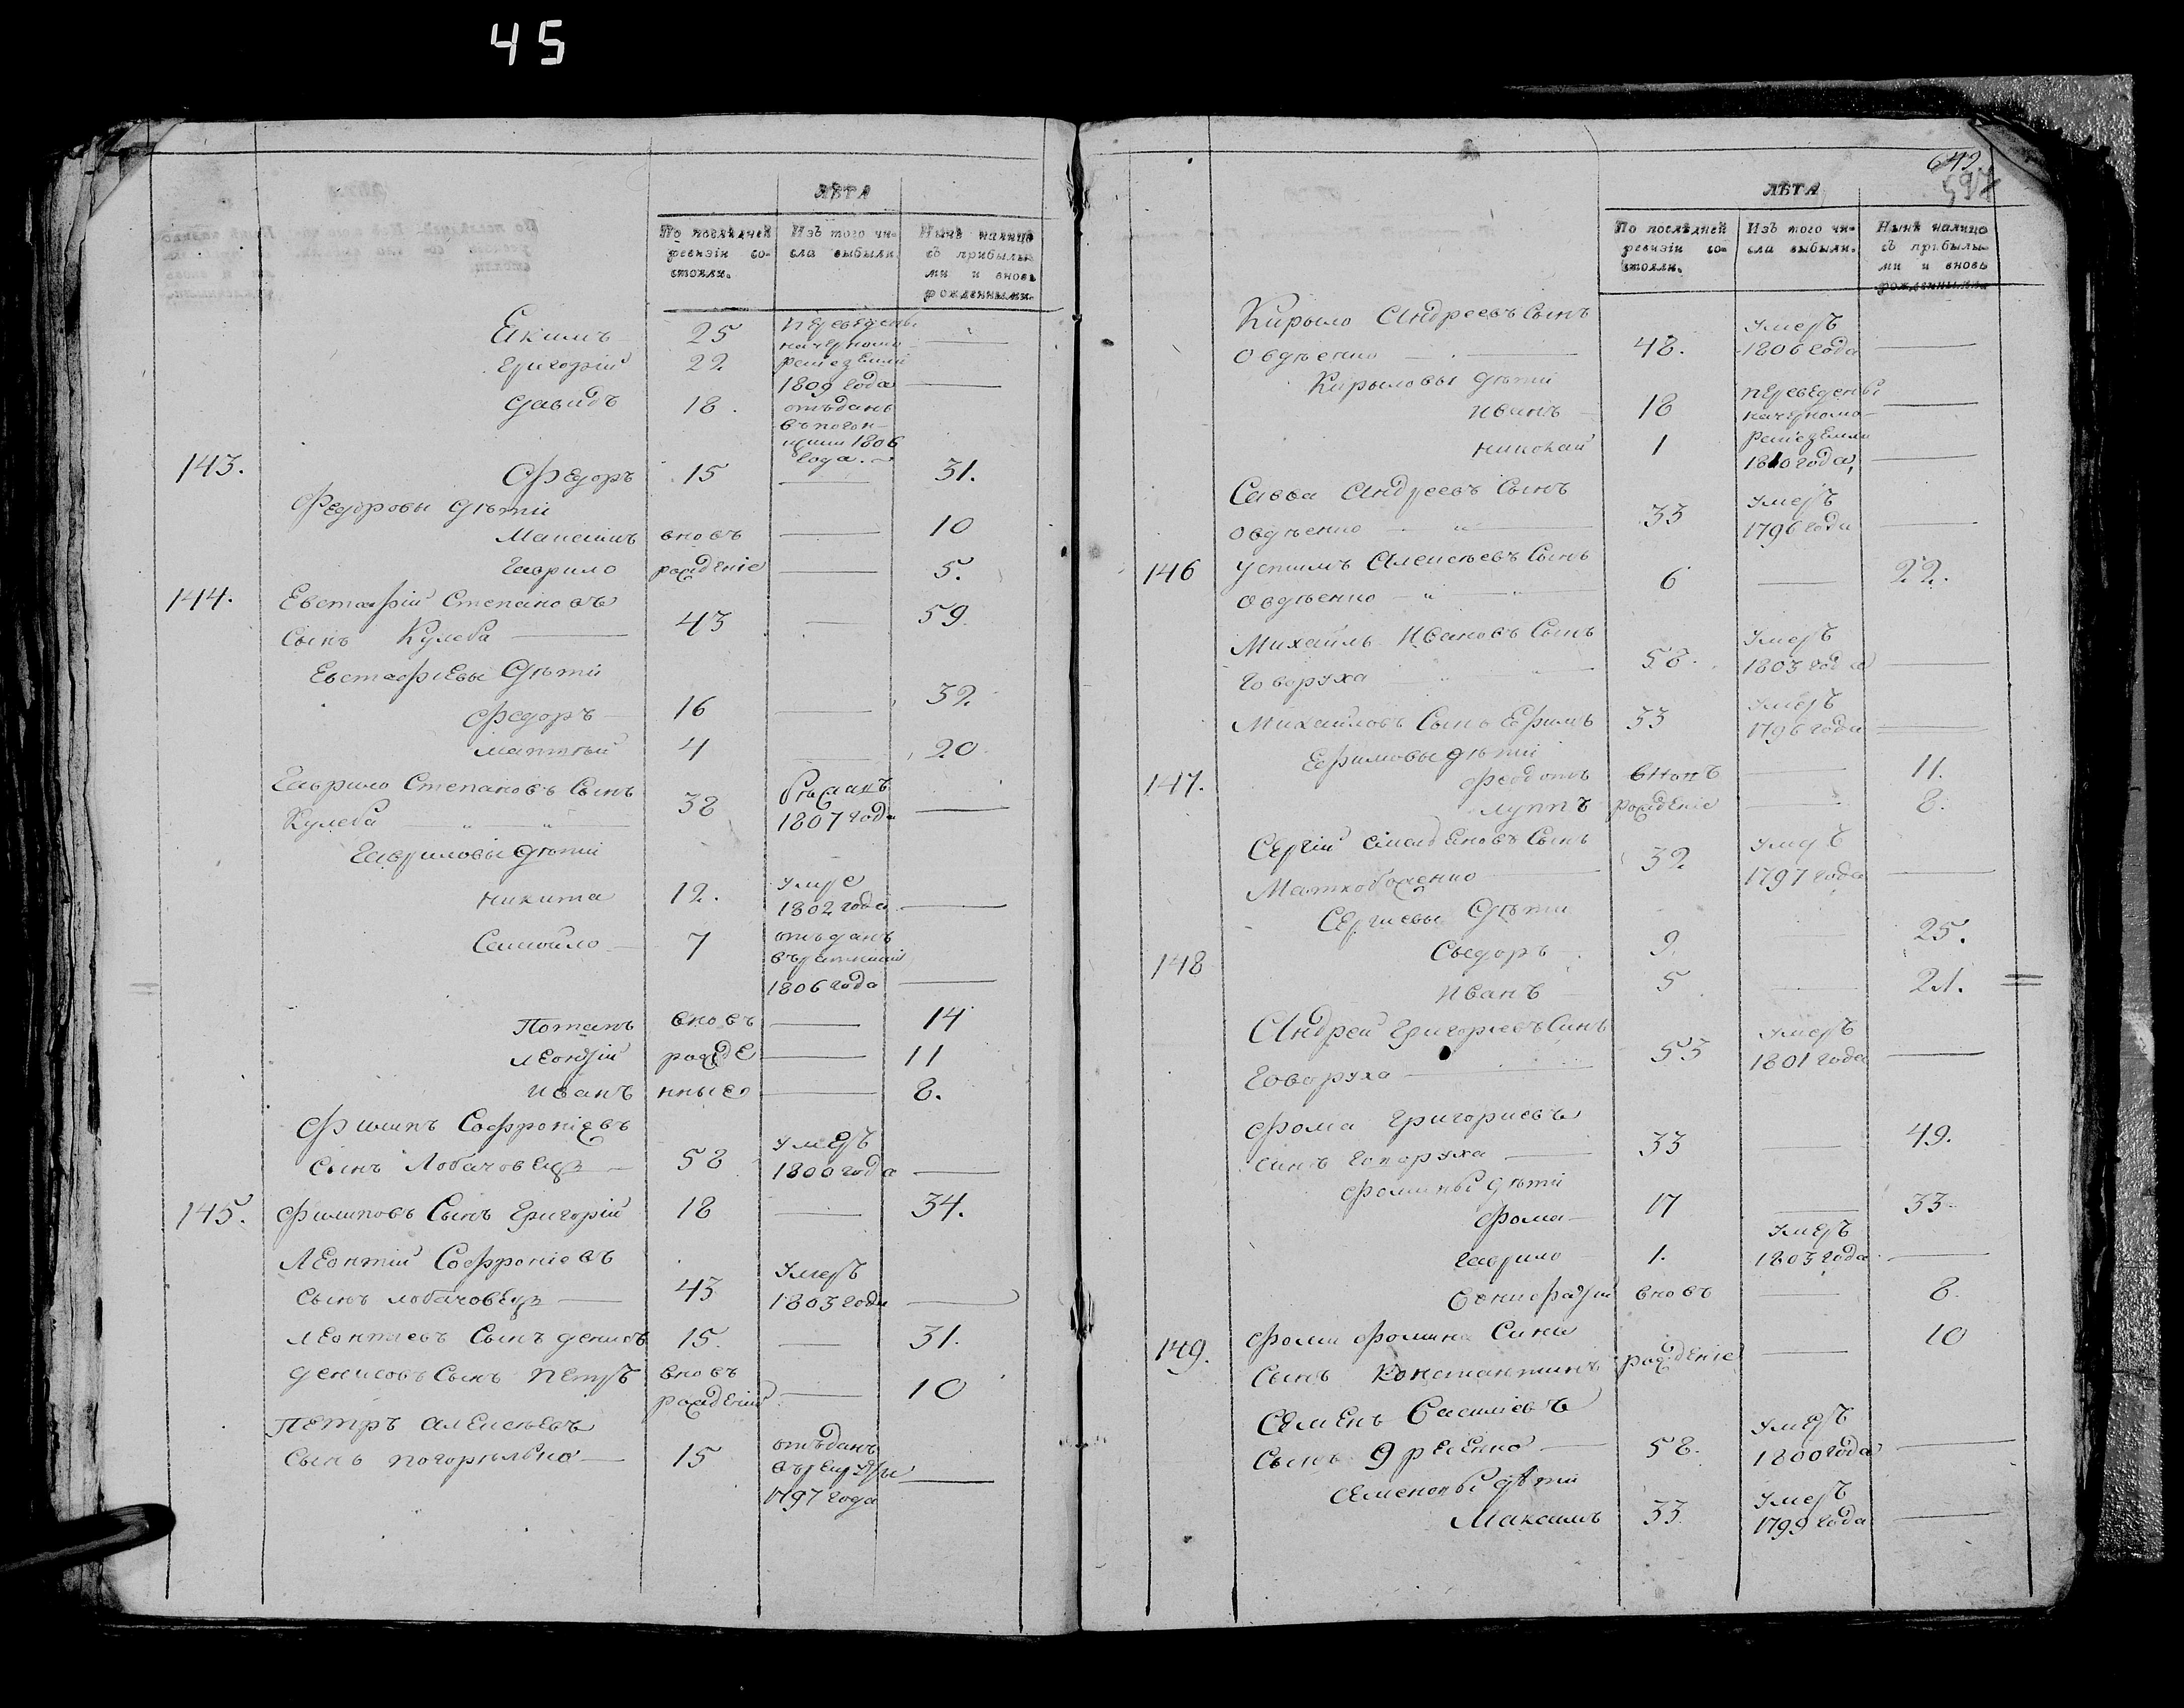 45
ЛѢТА
По послѣдней ревизіи состояли.
Изъ того числа выбыли.
Нынѣ налицо съ прибылыми и вновь рожденными.
Екимъ 25 переведены
начерномо-
Григорій 22 рскіе земли
1809 года
Давидъ 18. отъданъ
въ погон-
щики 1806
года.
143. Федоръ 15 31.
Федоровы дѣти
Максимъ вновъ 10
Гаврило рожденіе 5.
144. Евстафій Степановъ
сынъ Кулеба 43 59.
Евстафіевы дѣти
Федоръ 16 32.
Матвѣй 4 20.
Гаврило Степановъ Сынъ
Кулеба 38 1807 года
Гавриловы дѣти
Никита 12. умре
1802 года
Самойло 7 отъданъ
1806 года
Потапъ вновъ 14
Леонтій рожде 11
Иванъ нные 8.
Филипъ Софроніевъ
сынъ Лобачовецъ 58 умеръ
1800 года
145. Филиповъ Сынъ Григорій 18 34.
Леонтій Софроніевъ
сынъ лобачовецъ 43 умеръ
1803 года
Леонтіевъ Сынъ денисъ 15. 31.
денисовъ Сынъ Петръ вновъ
рожденій 10
Петръ Алексѣевъ
Сынъ погорѣлько 15 отъданъ
въ рекруты
1797 года
642
597
ЛѢТА
По послѣдней ревизіи состояли.
Изъ того числа выбыли.
Нынѣ налицо съ прибылыми и вновь рожденными
Кирыло Андреевъ Сынъ
Овдѣенко 48. умеръ
1806 года
Кирыловы дѣти
Иванъ 18 переведены
начерномо-
николай 1 рскіе земли
1810 года
Савва Андреевъ Сынъ
овдѣенко 33 умеръ
1796 года
146 Устимъ Алексѣевъ Сынъ
овдѣенко 6 22.
Михайль Ивановъ Сынъ
говоруха 58. умеръ
1803 года
Михайловъ Сынъ Ефимъ 33 умеръ
1796 года
Ефимовы дѣти
147. Федотъ вновъ 11.
луппъ рожденіе 8.
Сергій Сынъ 32 умеръ
1797 года
Сергиевы дѣти
148 Сыдоръ 9. 25.
Иванъ 5 21.
Андрей григориевъ Синъ
Говоруха 53 умеръ
1801 года
Фома Григориевъ
синъ говоруха 33 49.
Фомины дѣти
Фома 17 33.
гаврило 1. умеръ
1803 года
вновъ 8.
149. Фомы Фомина Сина
Сынъ Константинъ рожденіе 10
Семенъ Василіевъ
Сынъ 58. умеръ
1800 года
Семеновы дѣти
Максимъ 33. умеръ
1799 года